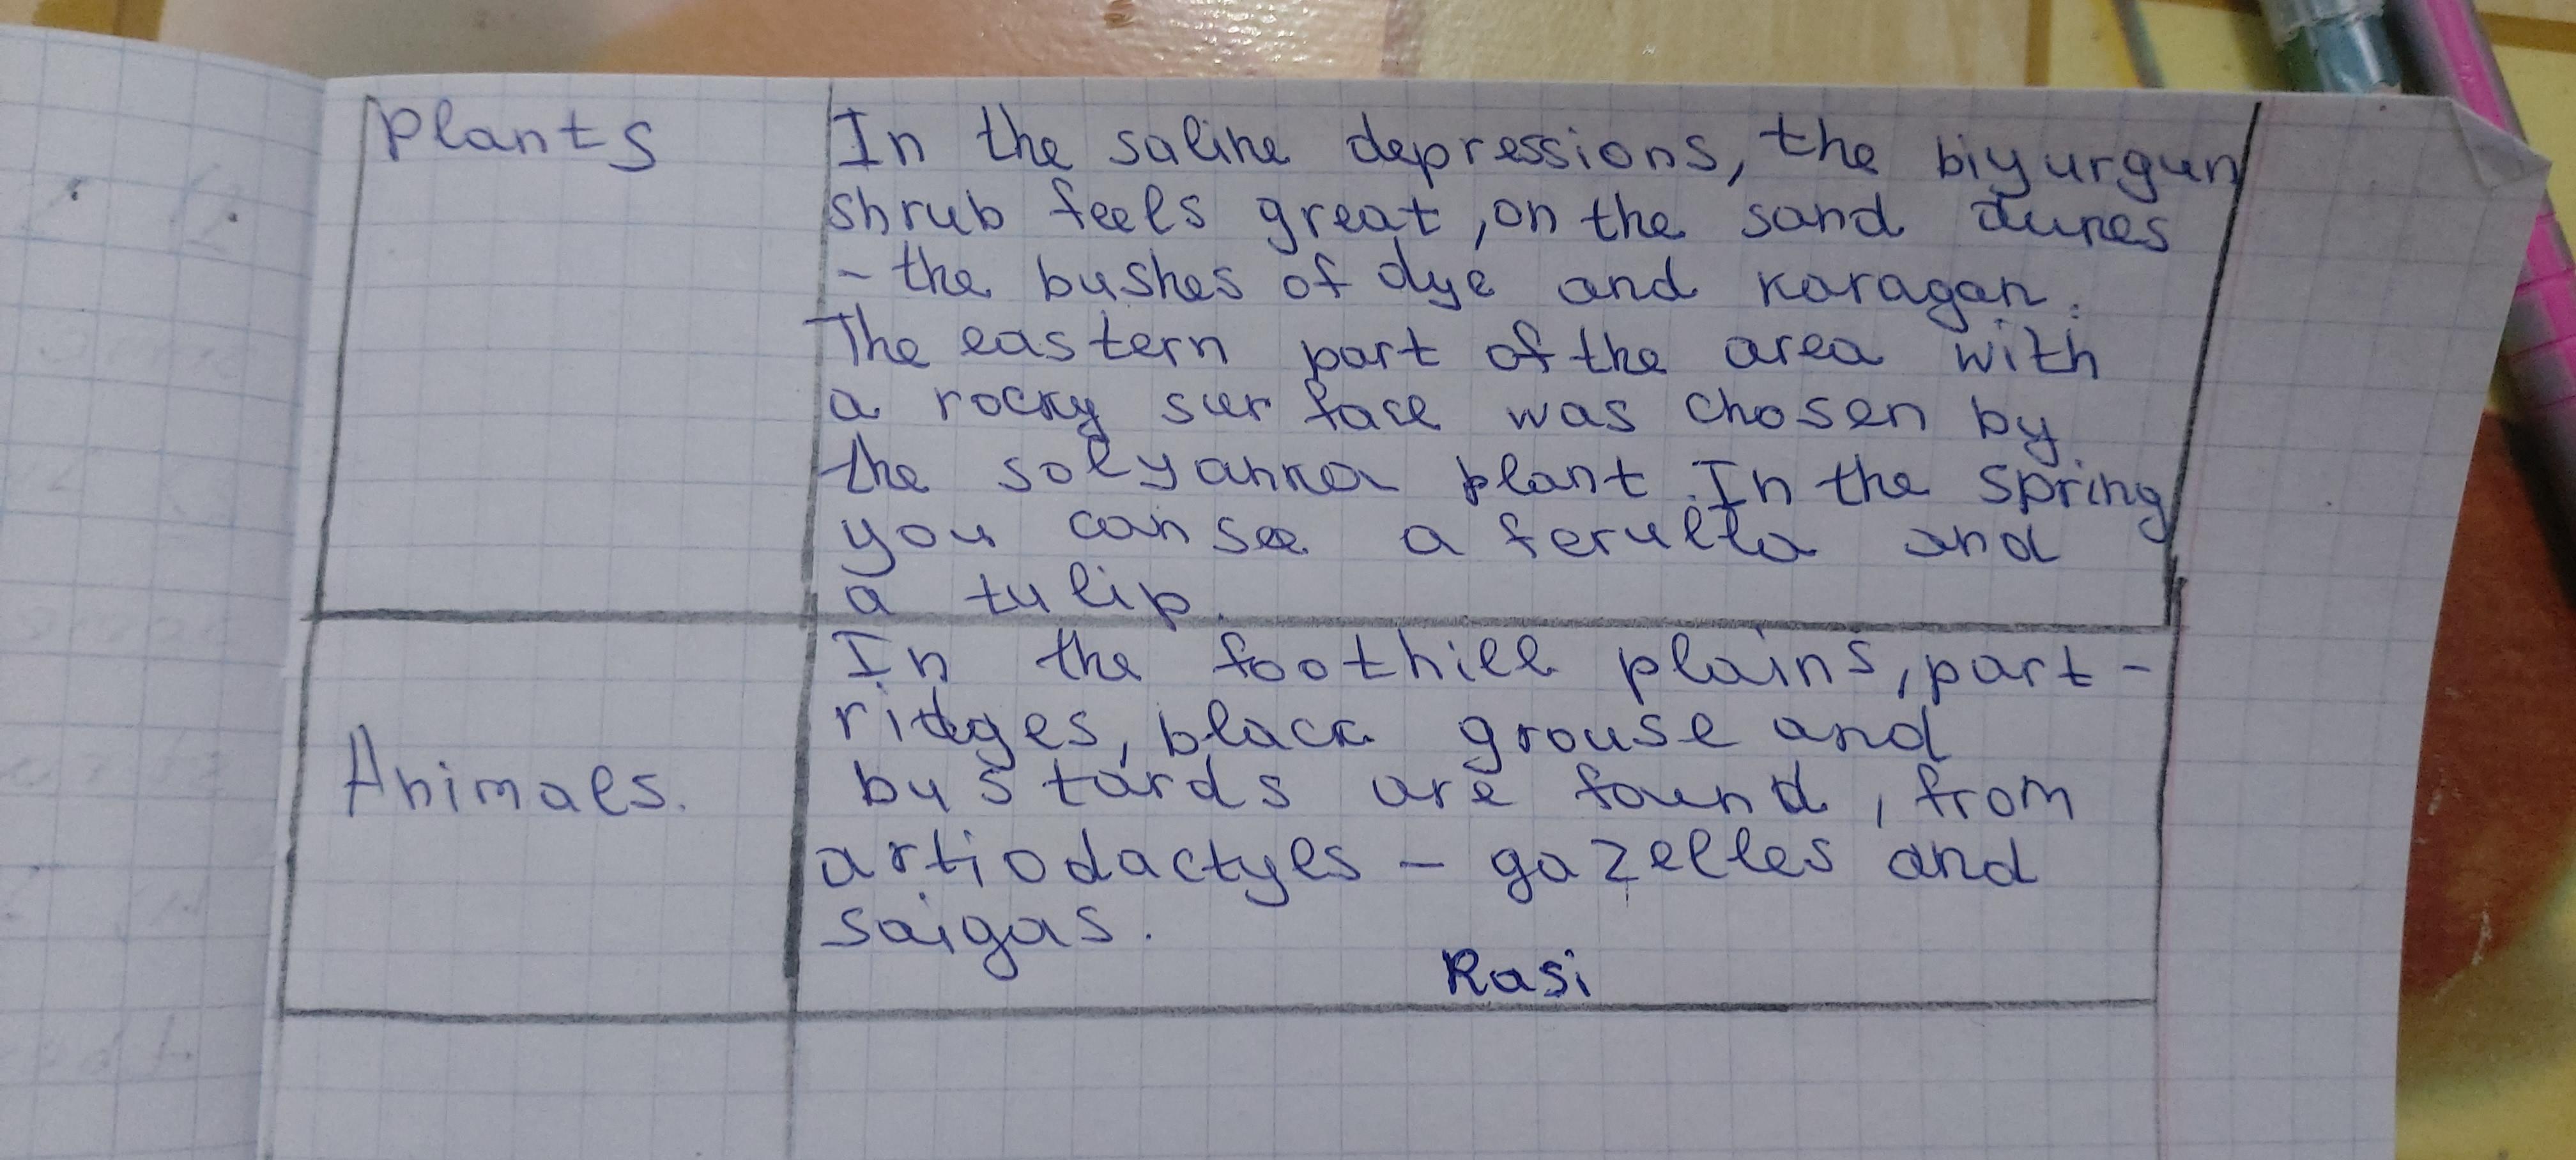 Plants
In the saline depressions, the biyurgun
shrub feels great, on the sand dunes
- the bushes of dye and karagan.
The eastern part of the area with
a rocky surface was chosen by
the solyanka plant. In the spring
you can see a ferulla and
a tulip.
Animals.
In the foothill plains, part-
ridges, black grouse and
bustards are found, from
artiodactyls - gazelles and
saigas.
Rasi